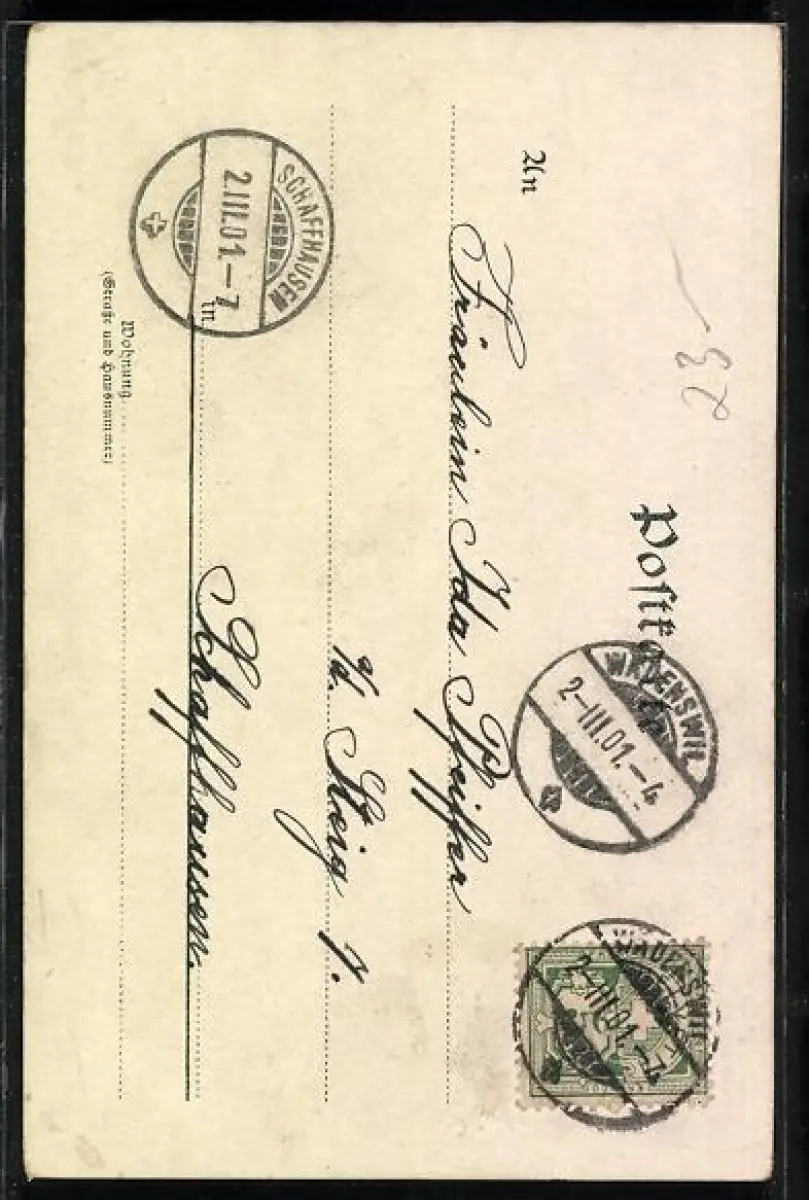 Postkarte
WÄDENSWIL
2-III.01.-4
WÄDENSWIL
2-III.01.-7
An
Fräulein Ida Pfeiffer
Steig 7.
in
Schaffhausen.
SCHAFFHAUSEN
2.III.01.-7
Wohnung
(Straße und Hausnummer)